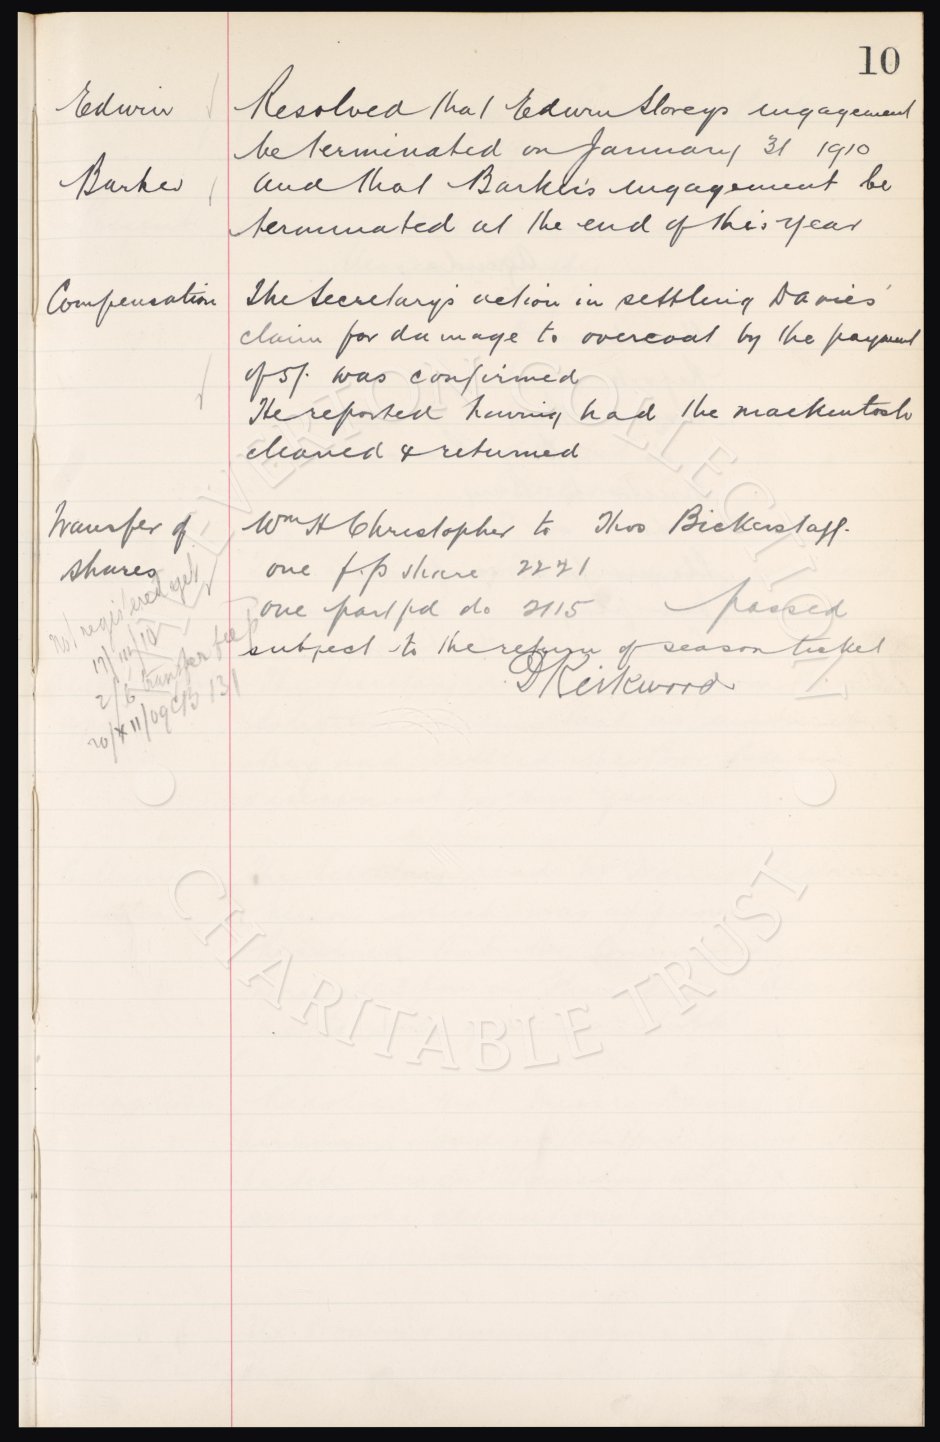 10
Edwin
Resolved that Edwin Storeys engagement
be terminated on January 31 1910
Barker
and that Barker's engagement be
terminated at the end of this year
Compensation
The Secretary's action in settling Davies'
claim for damage to overcoat by the payment
of 5/. was confirmed
He reported having had the mackintosh
cleaned & returned
Transfer of
shares
Wm H Christopher to Thos Bickerstaff.
one f.p share 2271
one part pd do 2115 passed
subject to the return of season ticket
D Kirkwood
Not registered yet
17/III/10
2/6 transfer fee pd
20/XII/09 CB 131
EVERTON COLLECTION
CHARITABLE TRUST